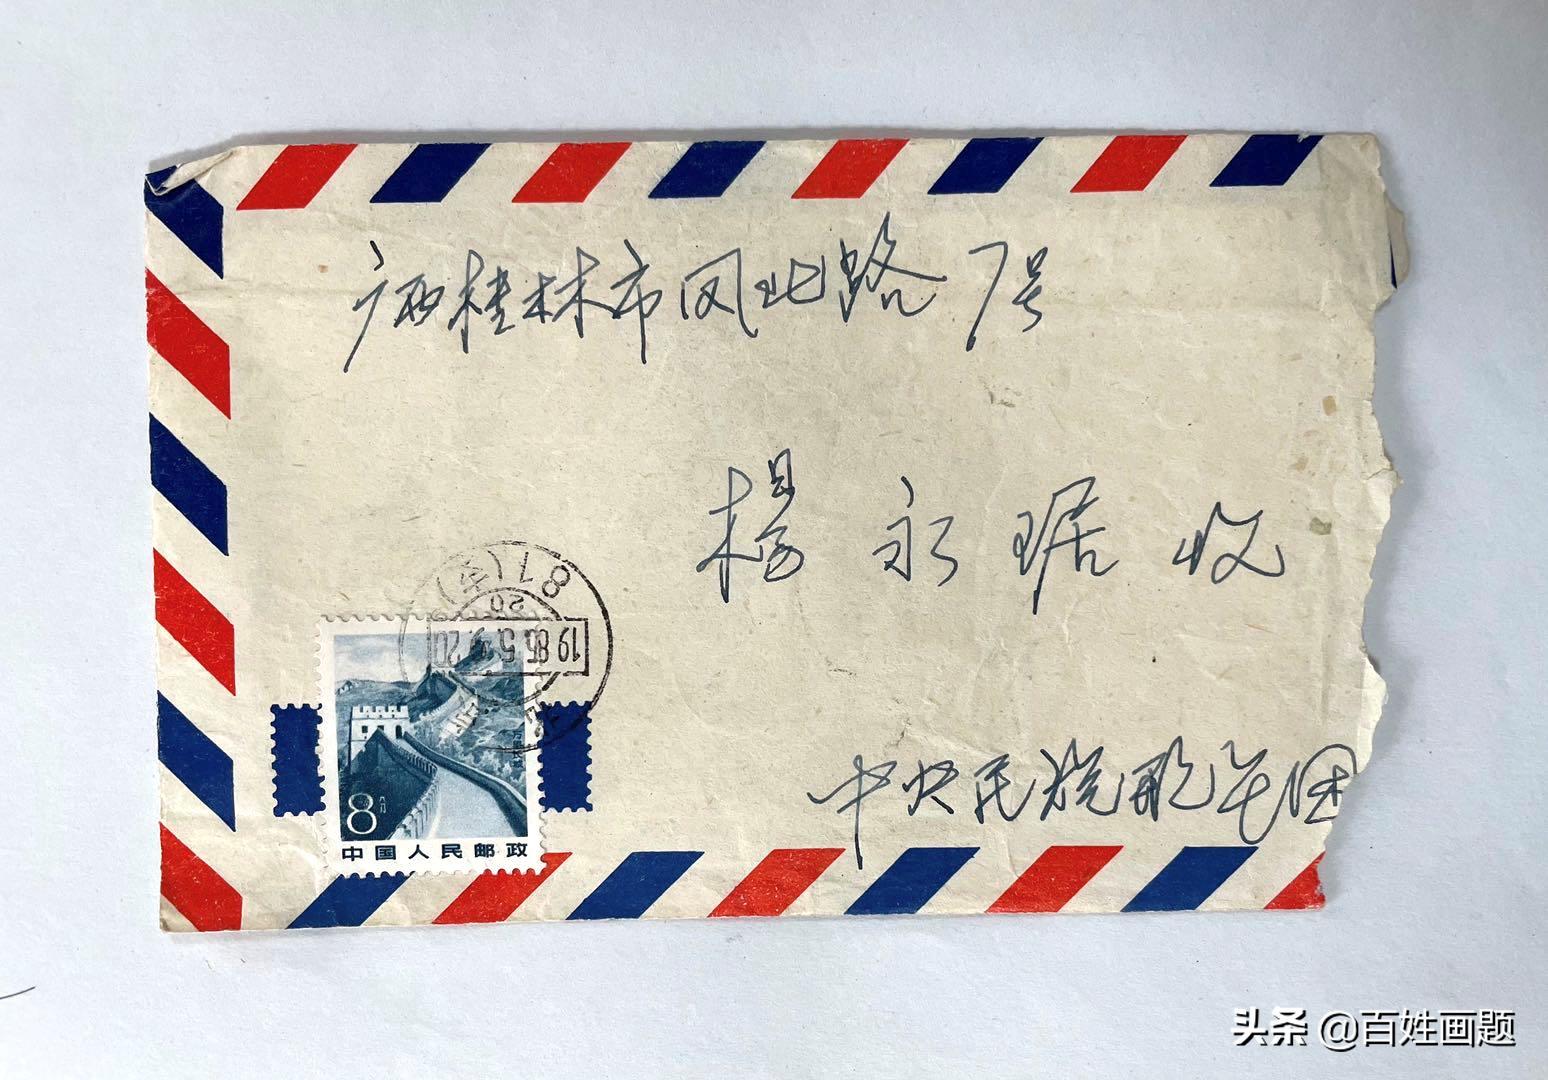 广西桂林市凤北路7号
楊永琚收
87(支)
20
1985.5.
8分
中国人民邮政
中央民族歌午团
头条 @百姓画题